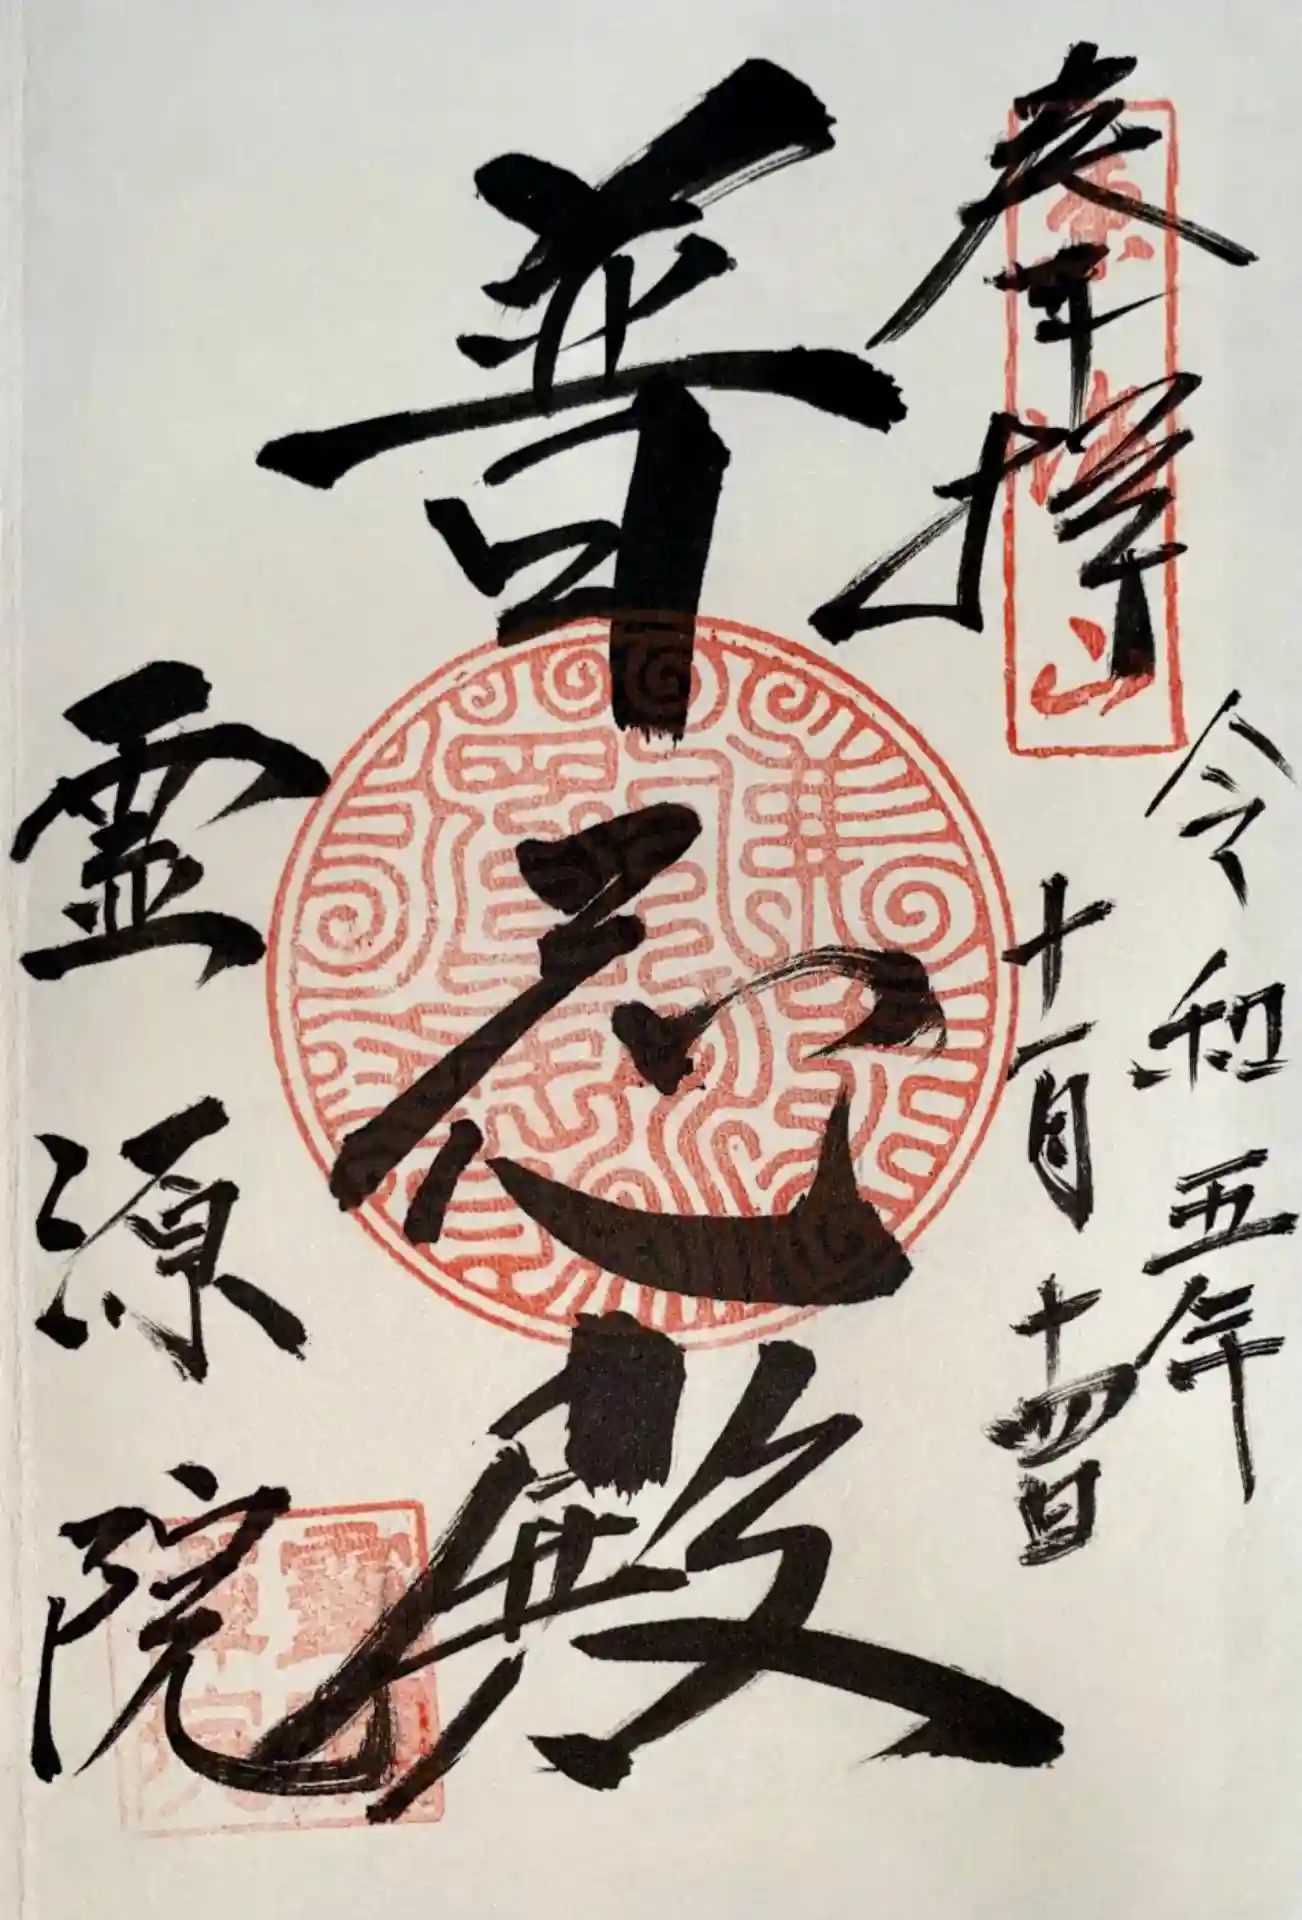 奉拝
令和五年
十一月十四日
普応殿
霊源院